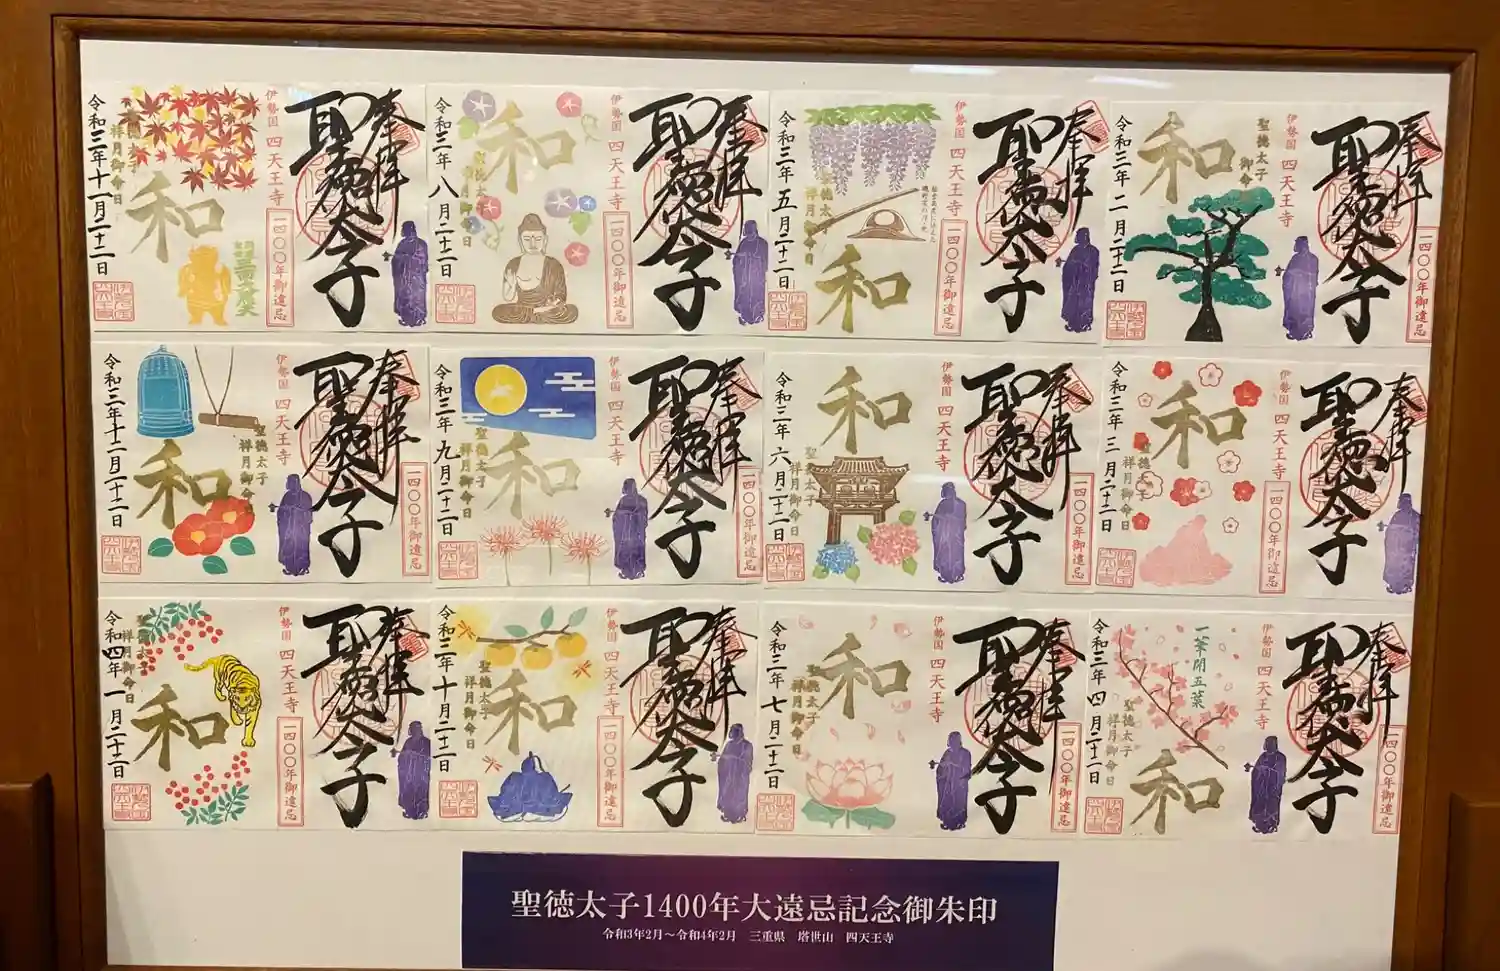 奉拝
聖徳太子
伊勢国 四天王寺
一四〇〇年御遠忌
聖徳太子
祥月御命日
和
令和三年十一月二十二日
奉拝
聖徳太子
伊勢国 四天王寺
一四〇〇年御遠忌
聖徳太子
祥月御命日
和
令和三年八月二十二日
奉拝
聖徳太子
伊勢国 四天王寺
一四〇〇年御遠忌
聖徳太子
祥月御命日
和
令和三年五月二十二日
奉拝
聖徳太子
伊勢国 四天王寺
一四〇〇年御遠忌
聖徳太子
御命
和
令和三年二月二十二日
奉拝
聖徳太子
伊勢国 四天王寺
一四〇〇年御遠忌
聖徳太子
祥月御命日
和
令和三年十二月二十二日
奉拝
聖徳太子
伊勢国 四天王寺
一四〇〇年御遠忌
聖徳太子
祥月御命日
和
令和三年九月二十二日
奉拝
聖徳太子
伊勢国 四天王寺
一四〇〇年御遠忌
聖徳太子
祥月御命日
和
令和三年六月二十二日
奉拝
聖徳太子
伊勢国 四天王寺
一四〇〇年御遠忌
聖徳太子
祥月御命日
和
令和三年三月二十二日
奉拝
聖徳太子
伊勢国 四天王寺
一四〇〇年御遠忌
聖徳太子
祥月御命日
和
令和四年一月二十二日
奉拝
聖徳太子
伊勢国 四天王寺
一四〇〇年御遠忌
聖徳太子
祥月御命日
和
令和三年十月二十二日
奉拝
聖徳太子
伊勢国 四天王寺
一四〇〇年御遠忌
聖徳太子
祥月御命日
和
令和三年七月二十二日
奉拝
聖徳太子
伊勢国 四天王寺
一四〇〇年御遠忌
一華開五葉
聖徳太子
祥月御命日
和
令和三年四月二十二日
聖徳太子1400年大遠忌記念御朱印
令和3年2月～令和4年2月 三重県 塔世山 四天王寺